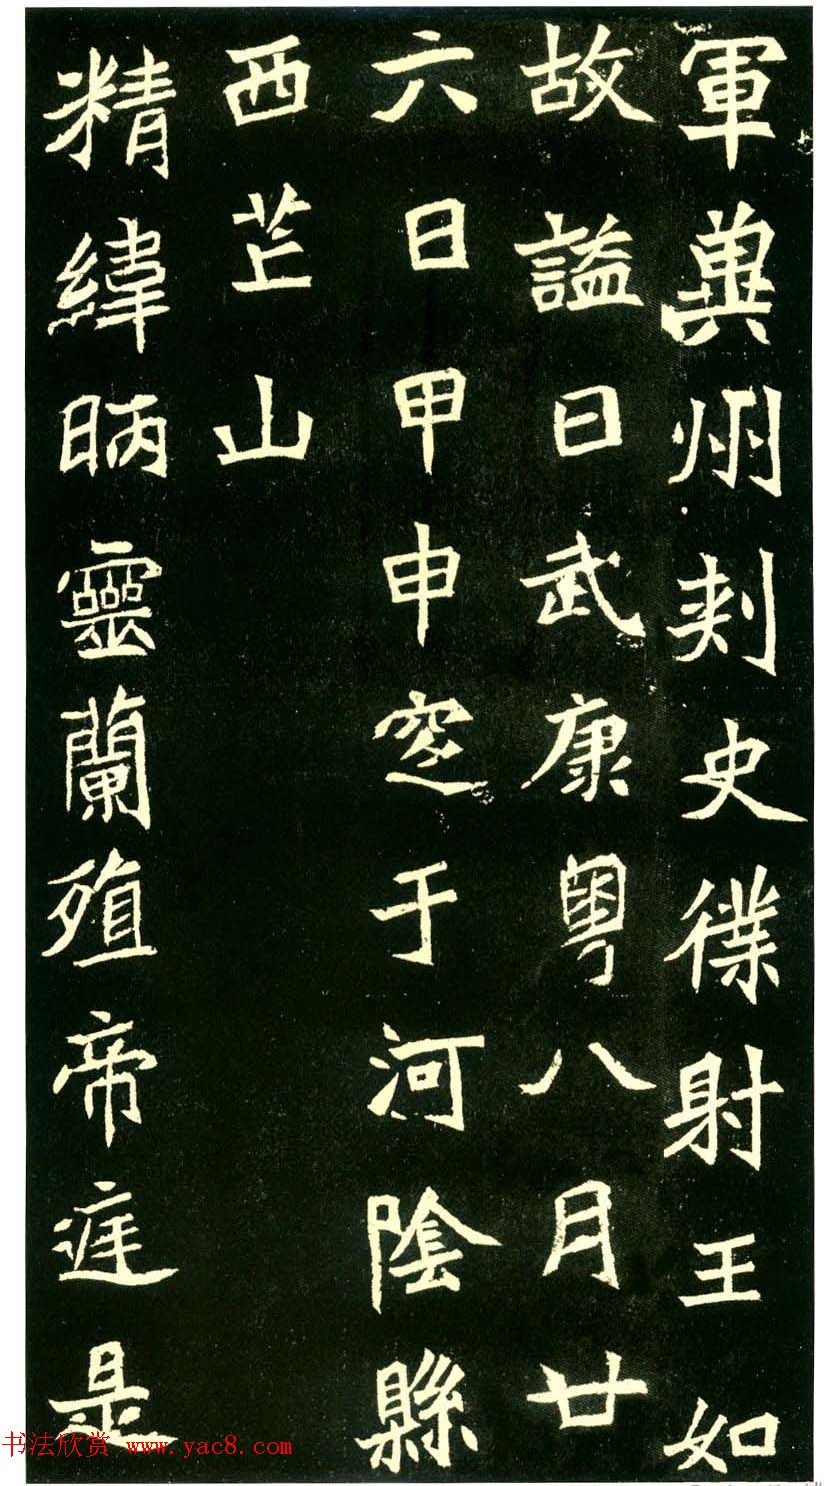 軍冀州刺史僕射王如
故謚曰武康粵八月廿
六日甲申窆于河陰縣
西芒山
精緯昞靈蘭殖帝遳是
书法欣赏 www.yac8.com